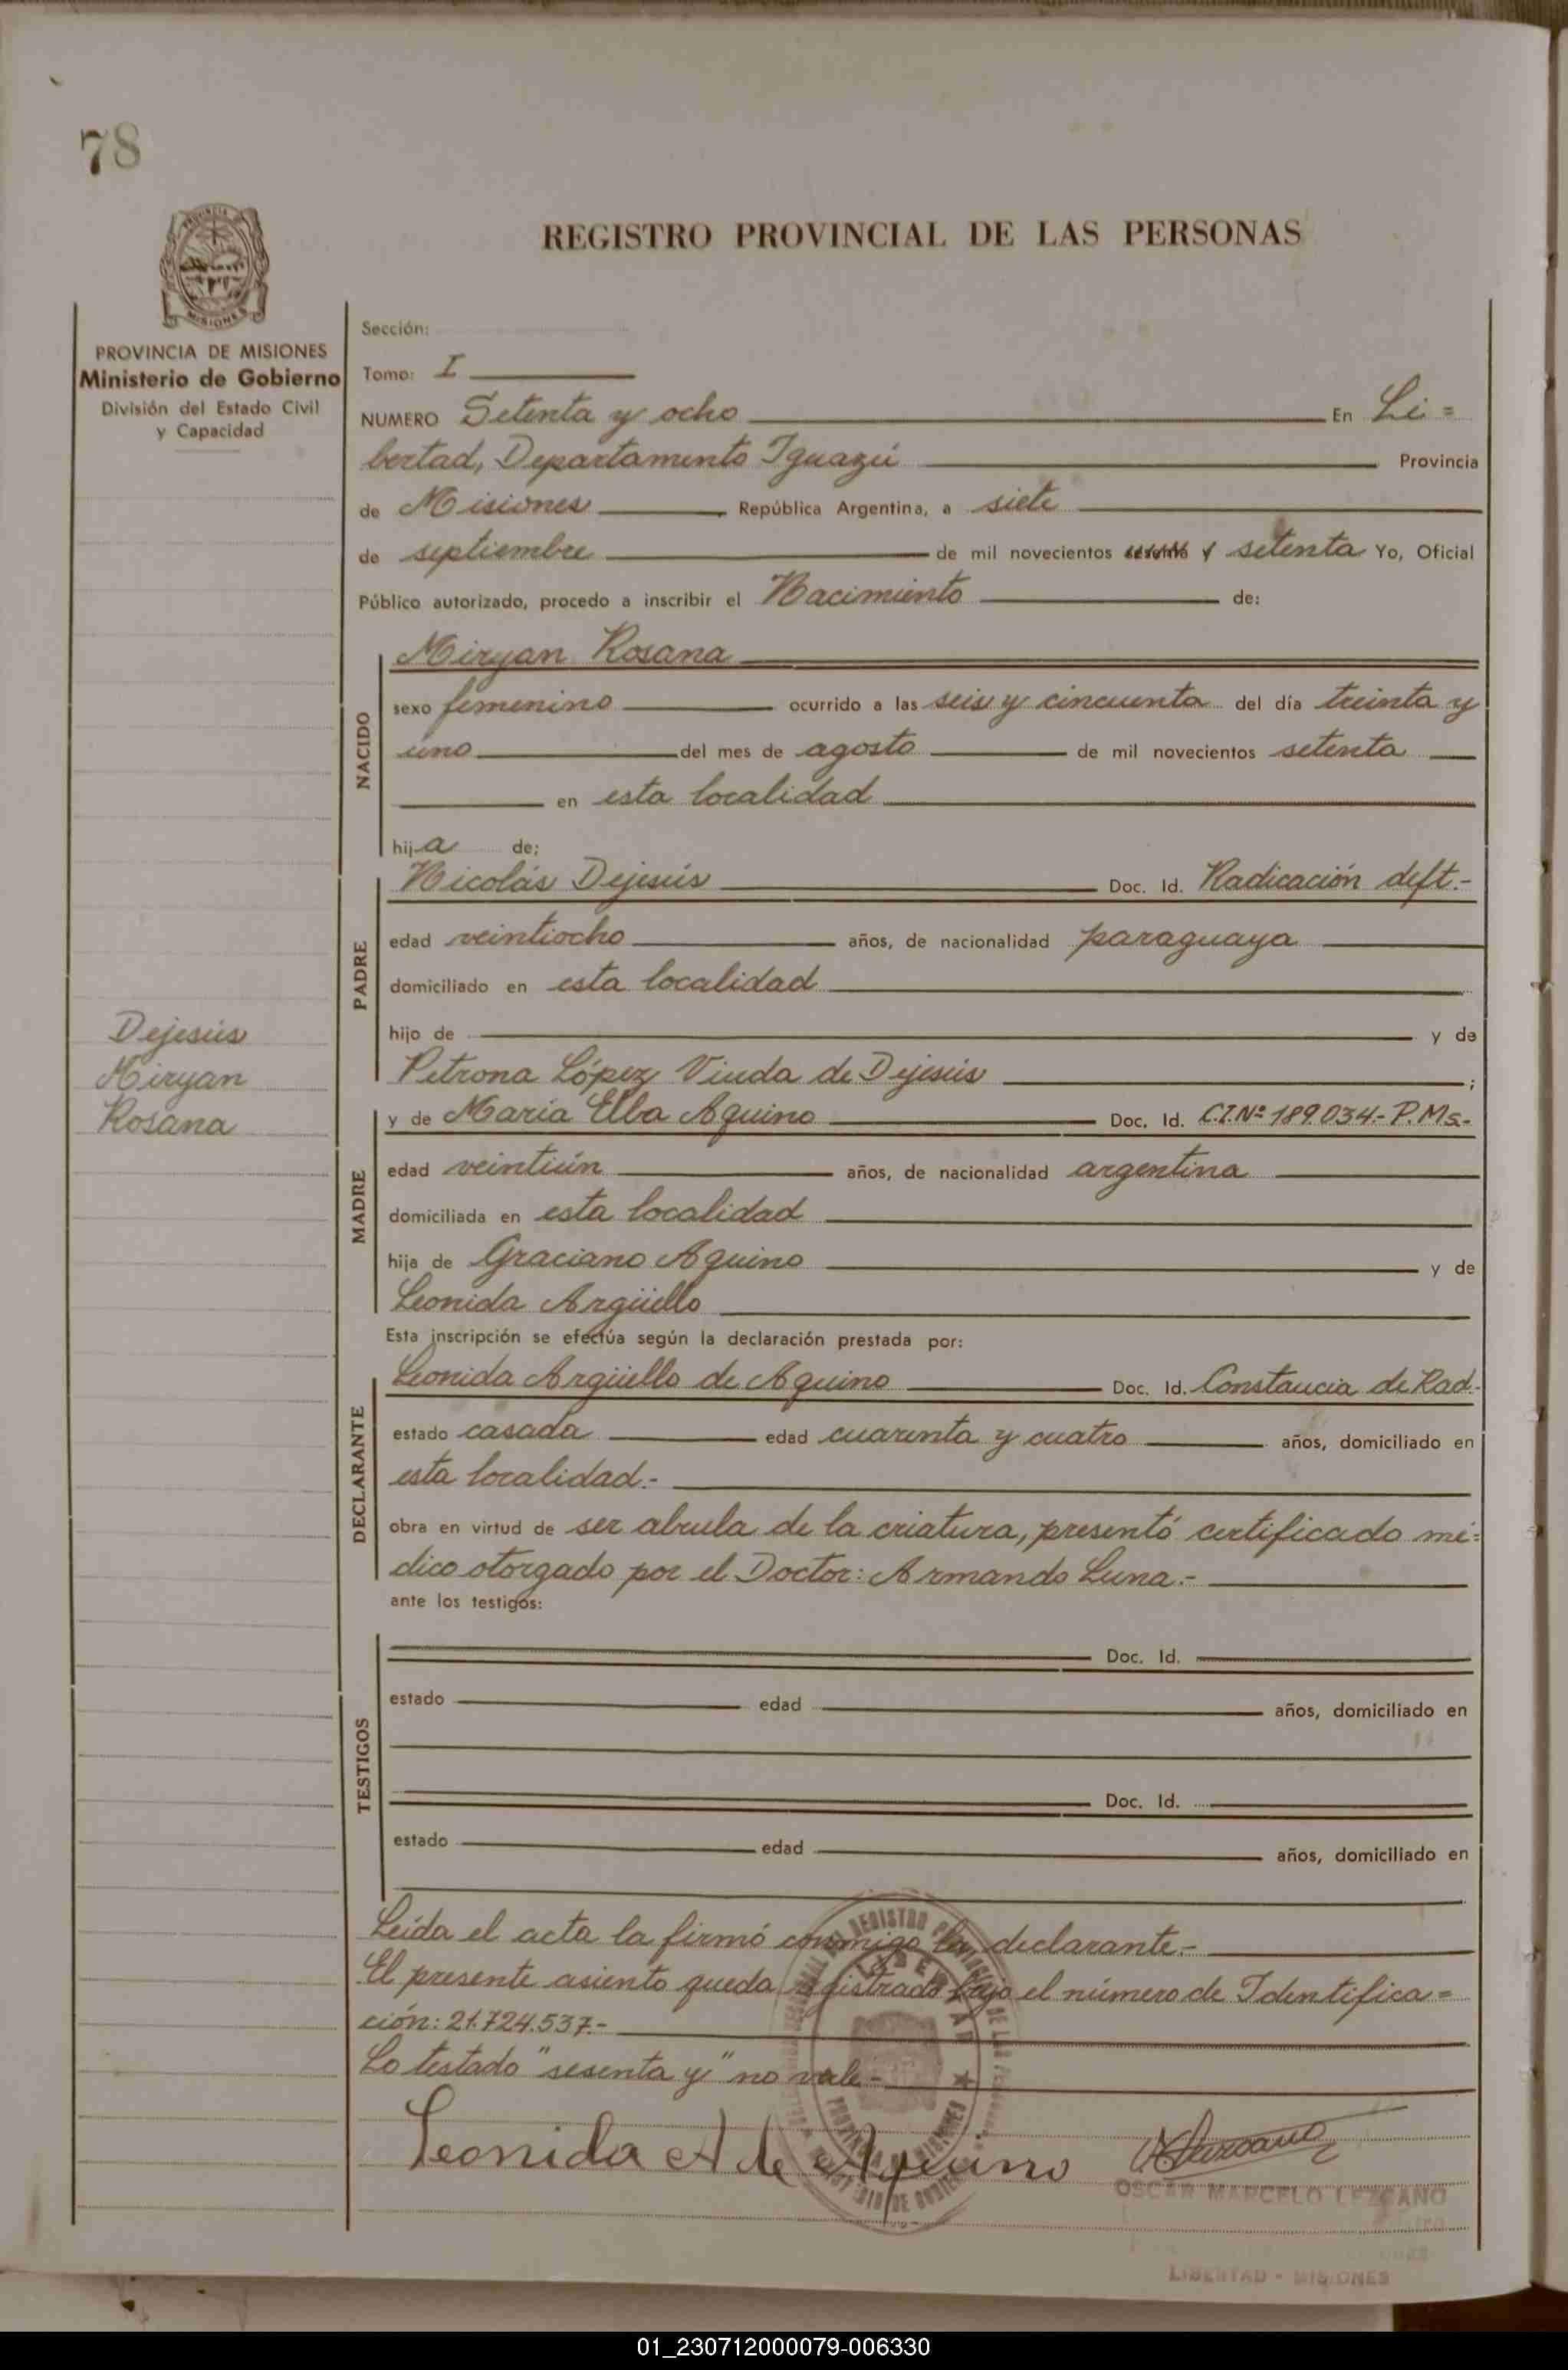 78
REGISTRO PROVINCIAL DE LAS PERSONAS
MISIONES
PROVINCIA DE MISIONES
Ministerio de Gobierno
División del Estado Civil
y Capacidad
Sección:
Tomo: I
NUMERO Setenta y ocho En Li=
bertad, Departamento Iguazú Provincia
de Misiones República Argentina, a siete
de septiembre de mil novecientos sesenta y setenta Yo, Oficial
Público autorizado, procedo a inscribir el Nacimiento de:
NACIDO
Miryan Rosana
sexo femenino ocurrido a las seis y cincuenta del día treinta y
uno del mes de agosto de mil novecientos setenta
en esta localidad
hija de;
PADRE
Nicolás Dejesús Doc. Id. Radicación deft.-
edad veintiocho años, de nacionalidad paraguaya
domiciliado en esta localidad
hijo de y de
Petrona López Viuda de Dejesús ;
Dejesús
Miryan
Rosana
MADRE
y de María Elba Aquino Doc. Id. C.I.Nº 189.034.- P.Ms.-
edad veintiún años, de nacionalidad argentina
domiciliada en esta localidad
hija de Graciano Aquino y de
Leonida Argüello
Esta inscripción se efectúa según la declaración prestada por:
DECLARANTE
Leonida Argüello de Aquino Doc. Id. Constancia de Rad.-
estado casada edad cuarenta y cuatro años, domiciliado en
esta localidad.-
obra en virtud de ser abuela de la criatura, presentó certificado mé=
dico otorgado por el Doctor: Armando Luna.-
ante los testigos:
TESTIGOS
Doc. Id.
estado edad años, domiciliado en
Doc. Id.
estado edad años, domiciliado en
Leída el acta la firmó conmigo la declarante.-
El presente asiento queda registrado bajo el número de Identifica=
ción: 21.724.537.-
Lo testado "sesenta y" no vale.-
Leonida A de Aquino
OSCAR MARCELO LEZCANO
LIBERTAD - MISIONES
01_230712000079-006330